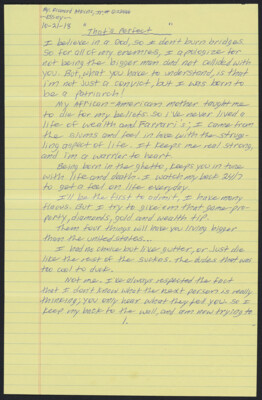 By: Richard
~Essay~
10-21-19
"That's Perfect"
I believe in a God, so I don't burn bridges.
So for all of my enemies, I apologize for
not being the bigger man and not collided with
you. But, what you have to understand, is that
I'm not just a convict, but I was born to
be a Patriarch!
My African-American mother taught me
to die for my beliefs. So I've never lived a
life of wealth and I come from
the slums and fell in love with the strugg-
ling aspect of life. It keeps me real strong,
and I'm a warrior to heart.
Being born in the ghetto, keeps you in tune
with life and death. I watch my back 24/7
to get a bead on life everyday.
I'll be the first to admit, I have many
flaws. But I try to give em that game-pro-
perty, diamonds, gold and wealth tip.
Them type things will have you living bigger
than the united states...
I had no choice but live gutter, or just die
like the rest of the suckas. The dudes that was
too cool to duck.
Not me. I've always respected the fact
that I don't know what the next person is really
thinking; you only hear what they tell you. So I
keep my back to the wall, and am now trying to